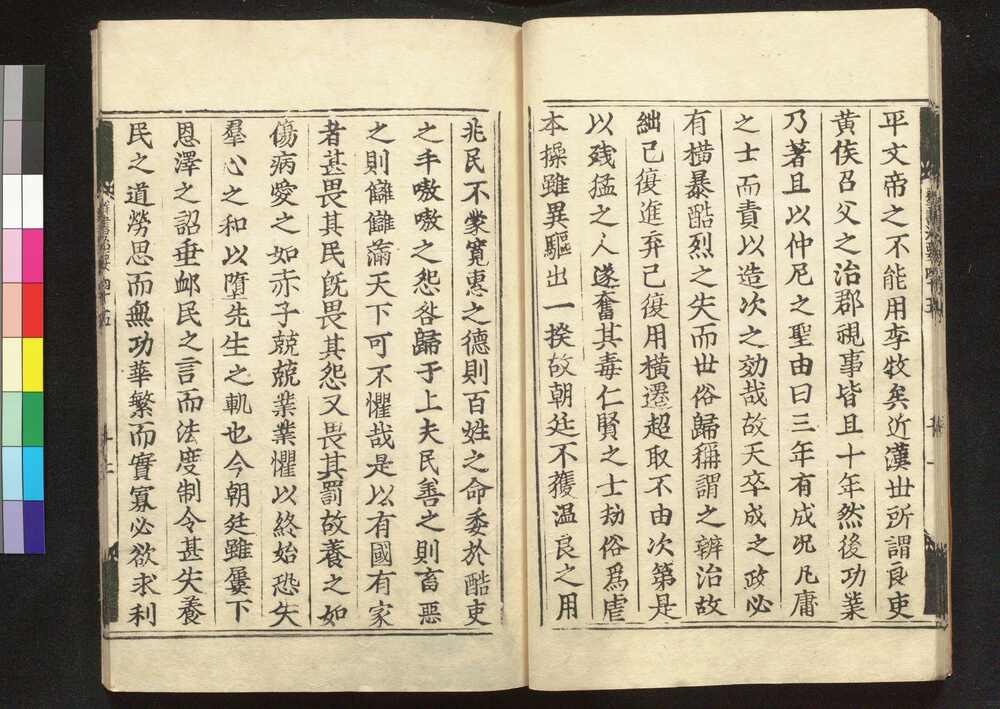 平文帝之不能用李牧矣近漢世所謂良吏
黄侯召父之治郡視事皆且十年然後功業
乃著且以仲尼之聖由曰三年有成况凡庸
之士而責以造次之効哉故夭卒成之政必
有横暴酷烈之失而世俗歸稱謂之辨治故
絀已復進弃已復用横遷超取不由次第是
以残猛之人遂奮其毒仁賢之士劫俗爲虐
本操雖異驅出一揆故朝廷不獲温良之用
兆民不蒙寬惠之德則百姓之命委於酷吏
之手嗷嗷之怨咎歸于上夫民善之則畜惡
之則讎讎滿天下可不懼哉是以有國有家
者甚畏其民旣畏其怨又畏其罰故養之如
傷病愛之如赤子兢兢業業懼以終始恐失
羣心之和以墮先生之軌也今朝廷雖屢下
恩澤之詔垂䘏民之言而法度制令甚失養
民之道勞思而無功華繁而實寡必欲求利